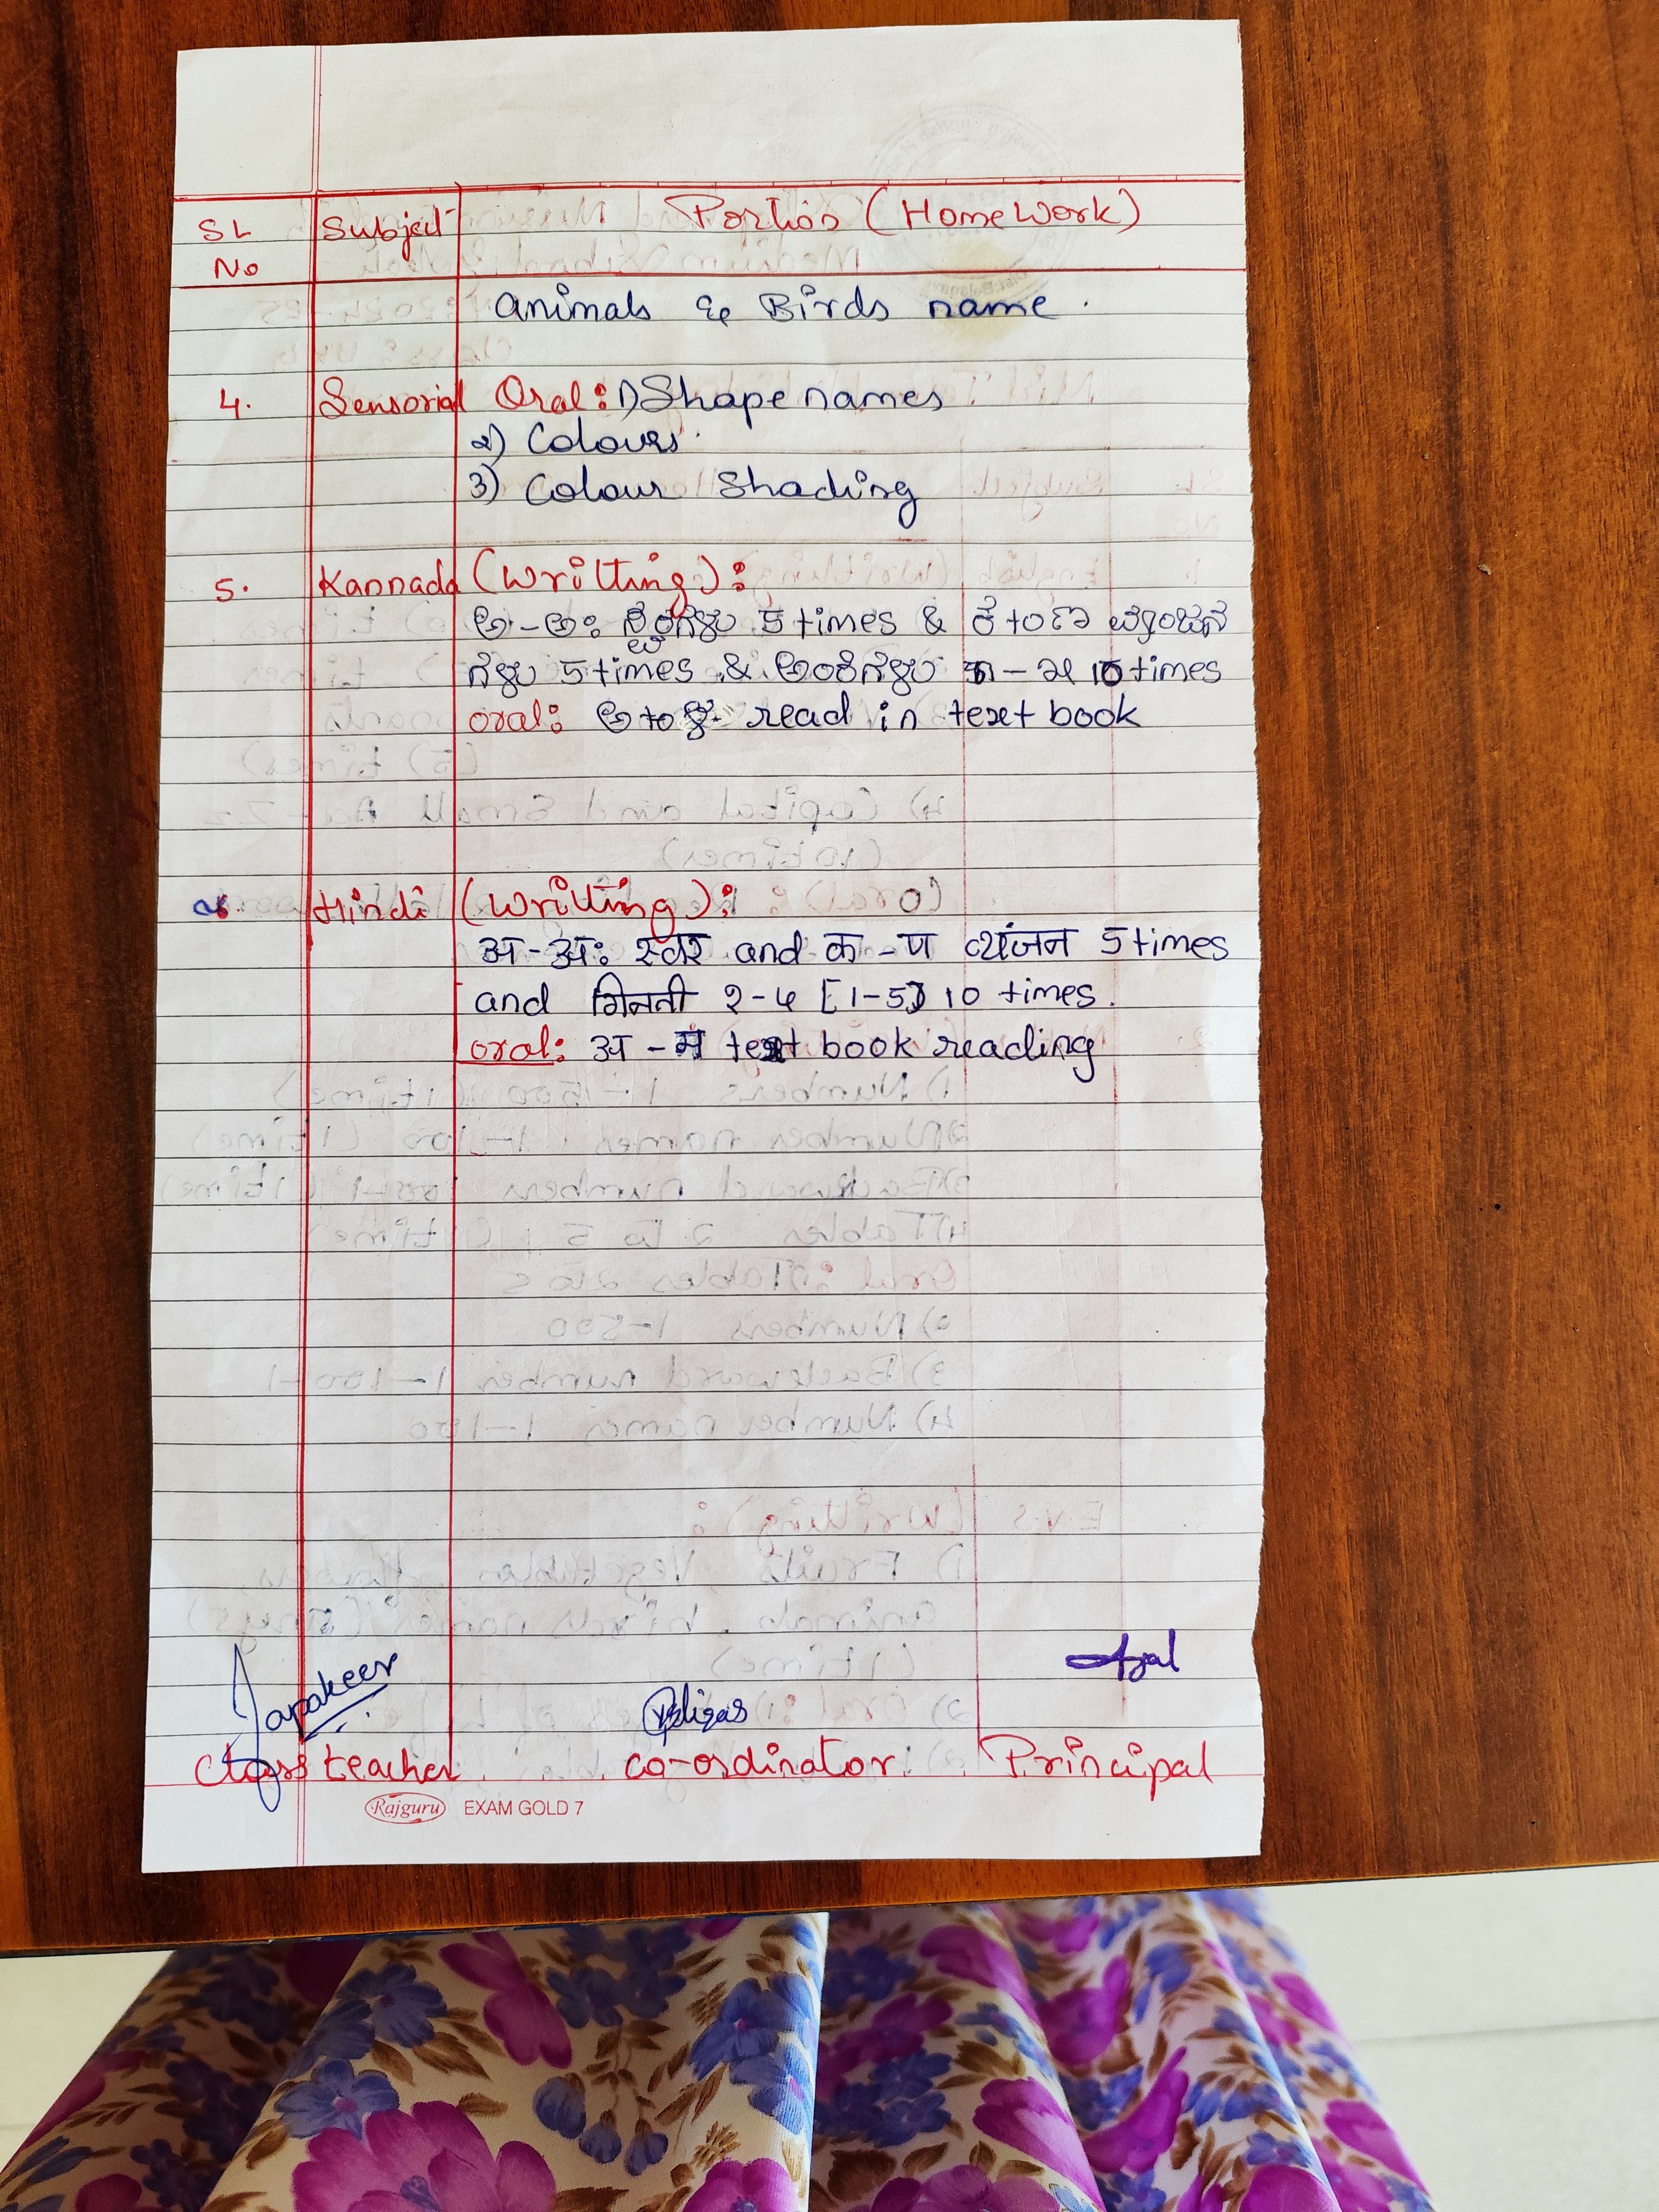 SL No Subject Portion (Home Work)
animals & Birds name.
4. Sensorial Oral: 1) Shape names
2) Colours.
3) Colour Shading
5. Kannada (Writting):
ಅ-ಅಃ ಸ್ವರಗಳು 5 times & ಕ to ಣ ವ್ಯಂಜನ
ಗಳು 5 times & ಅಂಕಿಗಳು ೧-೫ 10 times
oral: ಅ to ಳ read in text book
6. Hindi (Writting):
अ-अः स्वर and क-ण व्यंजन 5 times
and गिनती १-५ [1-5] 10 times.
oral: अ-म text book reading
class teacher co-ordinator Principal
Rajguru EXAM GOLD 7